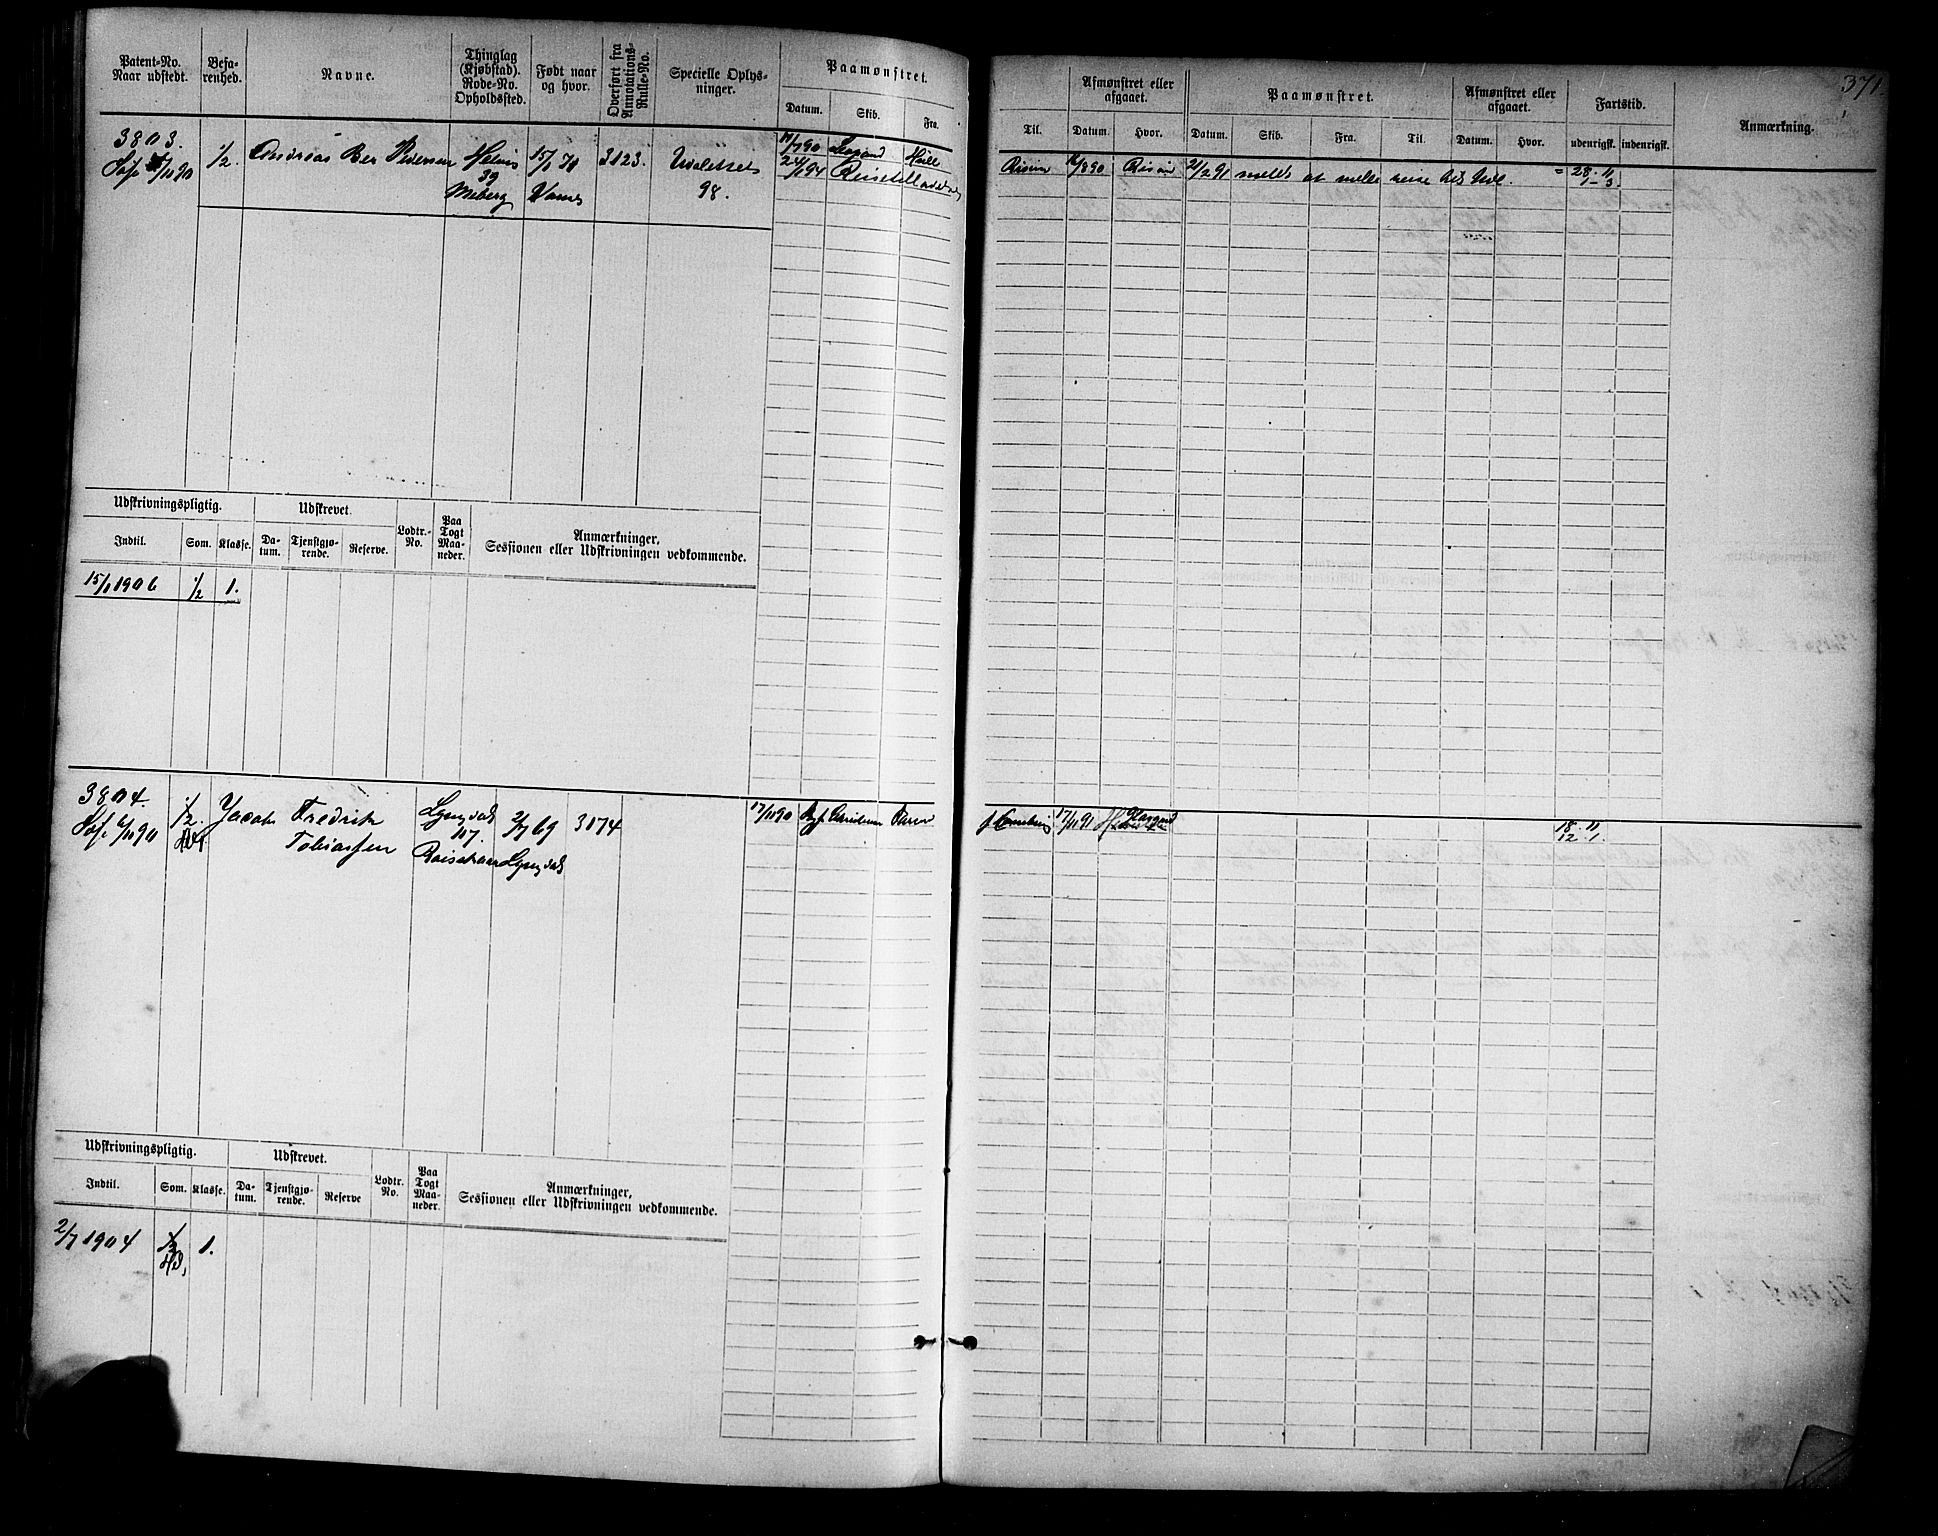 371
Patent-No.
Naar udstedt.
Befa-
renhed.
Navne.
Thinglag
(Kjøbstad).
Rode-No.
Opholdssted.
Født naar
og hvor.
Overført fra
Annotations-
Rulle-No.
Specielle Oplys-
ninger.
Paamønstret.
Datum. Skib. Fra.
Til.
Afmønstret eller
afgaaet.
Datum. Hvor.
Paamønstret.
Datum. Skib. Fra. Til.
Afmønstret eller
afgaaet.
Datum. Hvor.
Fartstid.
udenrigsk. indenrigsk.
Anmærkning.
3803.
1/2.
Andreas Ber Pedersen
39
15/1 70
3123.
Udslettet
98.
Risør 16/8 90 Risør 2/2 91 meldt at ville reise
28 - 11
1 - 3.
Udskrivningspligtig.
Indtil. Som. Klasse.
Udskrevet.
Da-
tum.
Tjenstgjø-
rende.
Reserve.
Lodtr.-
No.
Paa
Togt
Maa-
neder.
Anmærkninger,
Sessionen eller Udskrivningen vedkommende.
15/1 1906 1/2 1.
3804.
1/2.
Jacob Fredrik
Tobiassen
Lyngdal
117.
2/7 69
3174
Lyngdal
17/11 90
17/11 91
18 - 11
12 - 1.
Udskrivningspligtig.
Indtil. Som. Klasse.
Udskrevet.
Da-
tum.
Tjenstgjø-
rende.
Reserve
Lodtr.
No.
Paa
Togt
Maa-
neder.
Anmærkninger,
Sessionen eller Udskrivningen vedkommende.
2/7 1904 1.